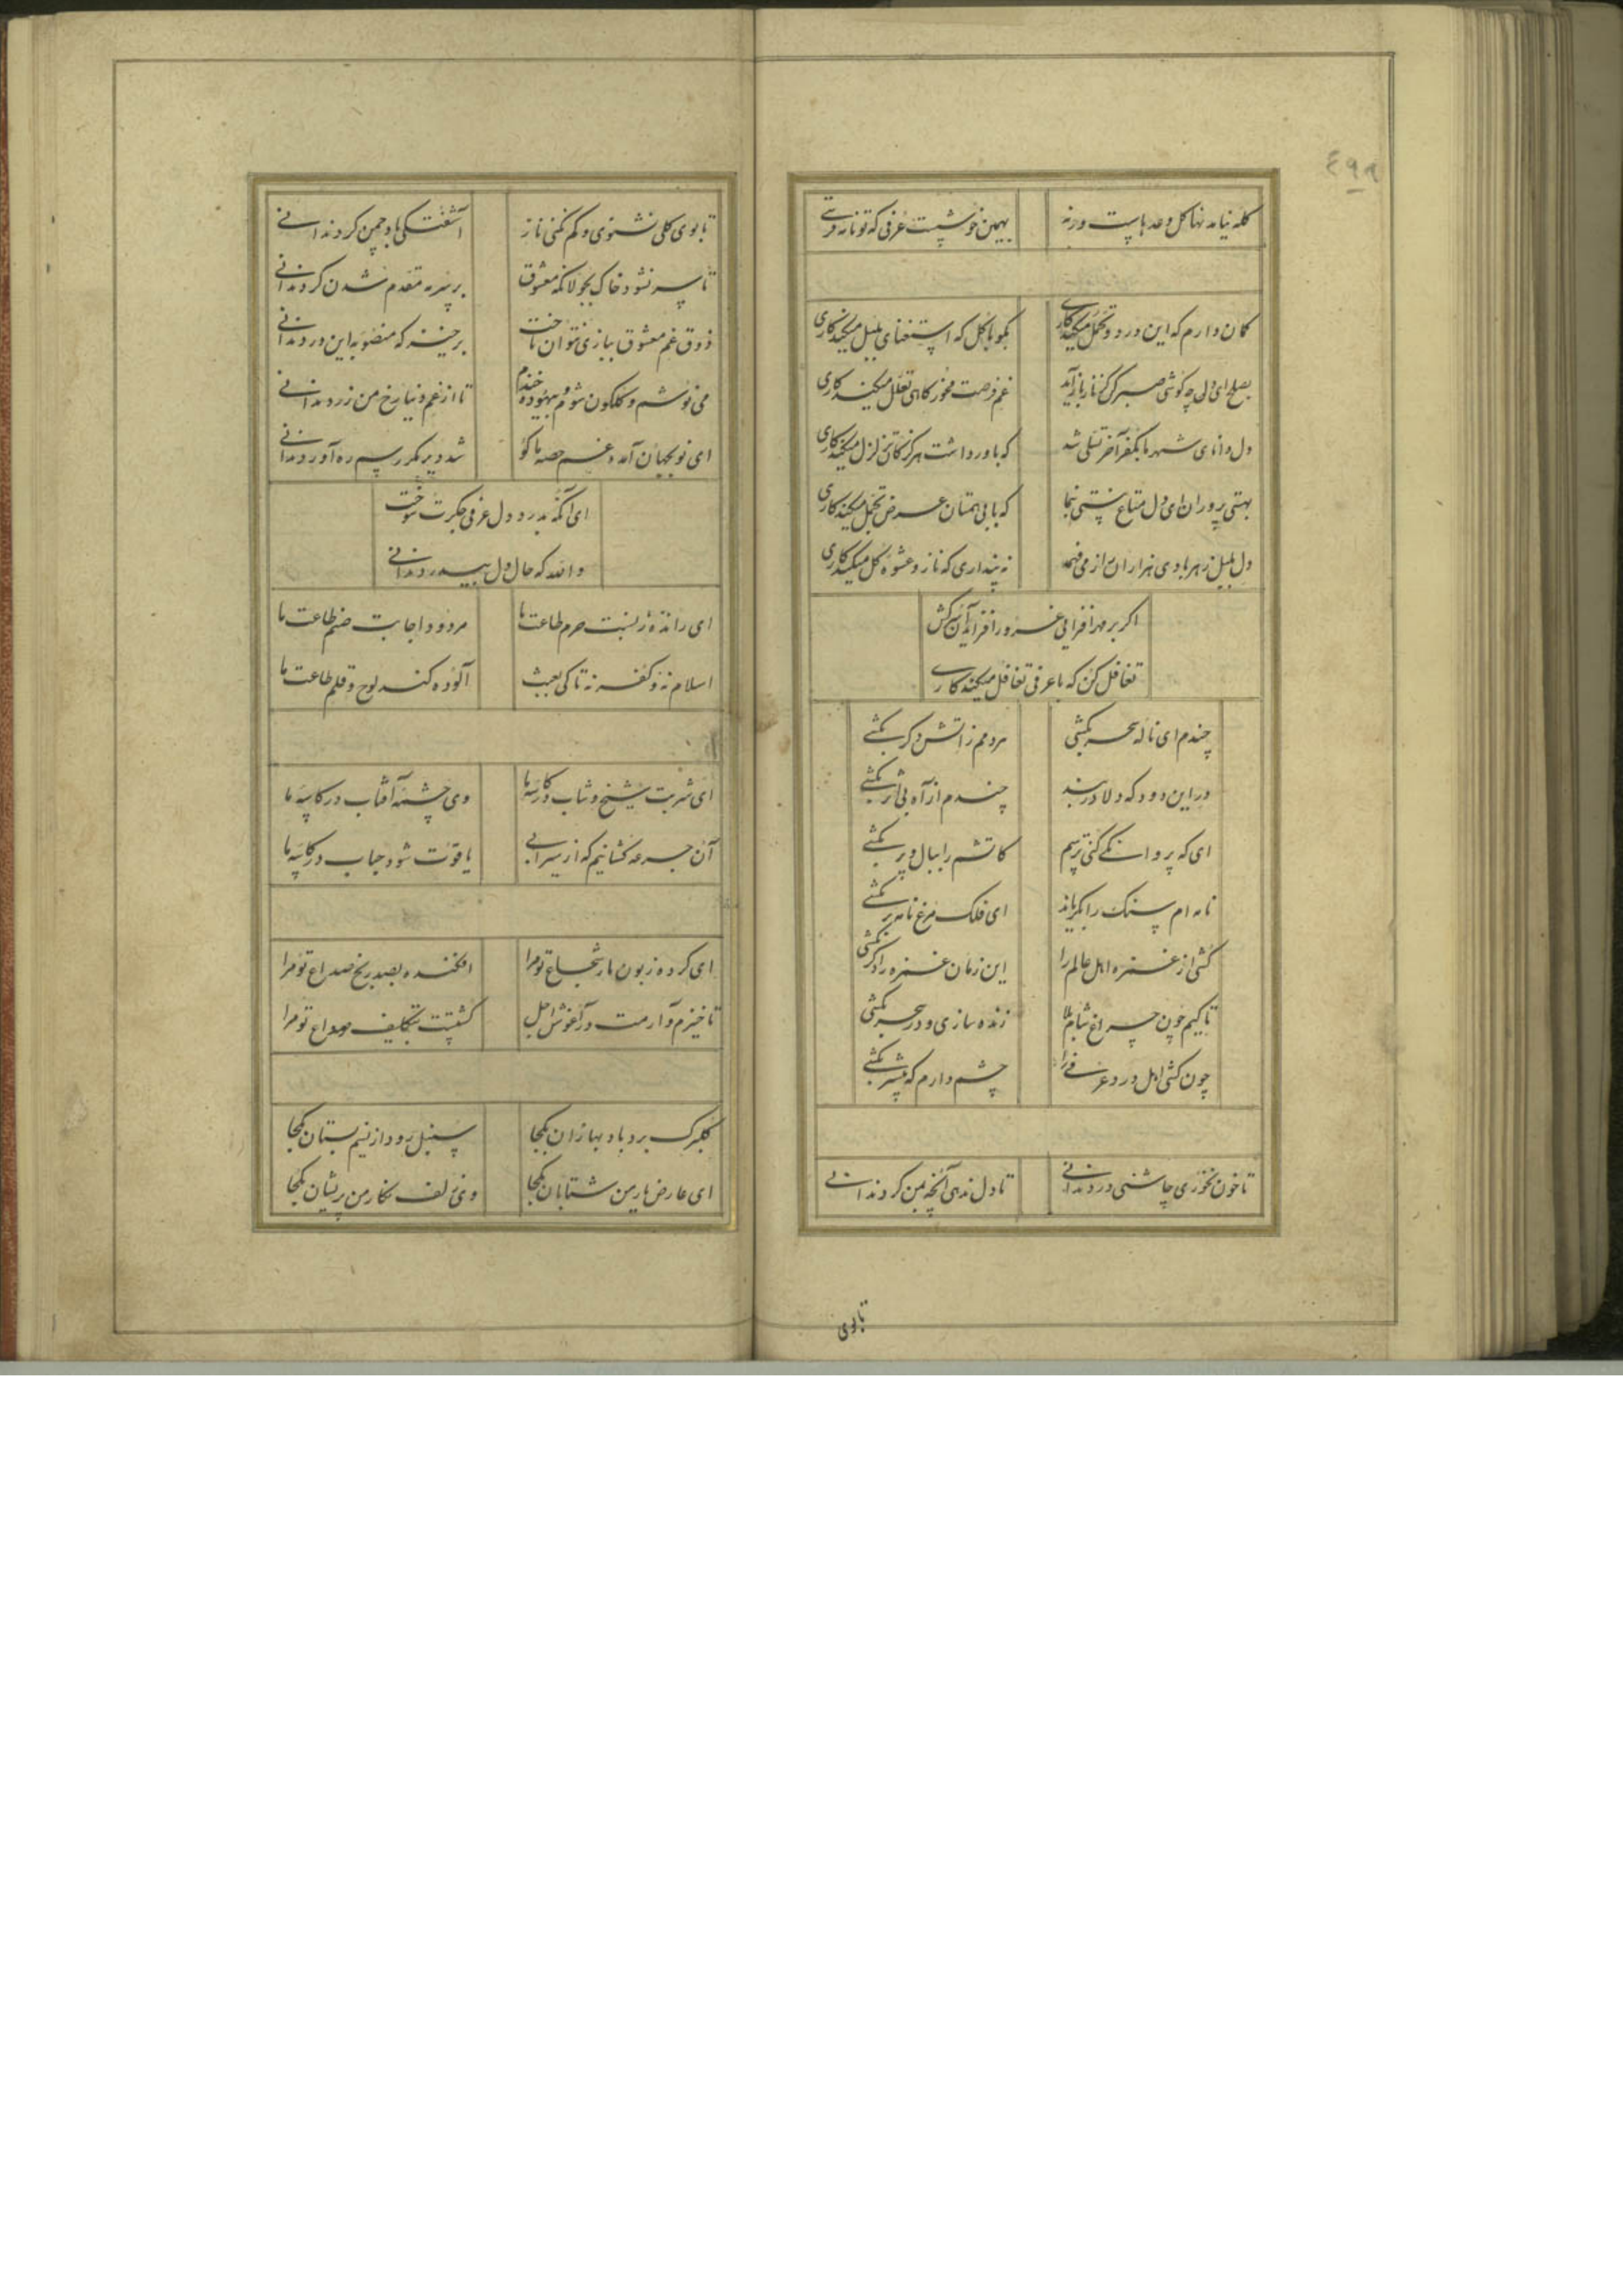 ٤٩٩
گله نیامد نها گل وعدهاست ورنه
بهمین خوشست عرفی که تو نامه فرستی
گمان دارم که این درد و تحمل میکند کاری
بگو با گل که استغنای بلبل میکند کاری
بصلح ای دل چه کوشی صبر کن کز ناز باز آید
غم فرصت مخور کاهی تعلل میکند کاری
دل دانای شهر ما بکفر آخر تسلی شد
که باور داشت هرگز کان تزلزل میکند کاری
بهستی پروران ای دل متاع نیستی بنما
که با بی همتان عرض تجمل میکند کاری
دل بلبل ز هر بادی هزاران راز می فهمد
نه پنداری که ناز و عشوه گل میکند کاری
اگر بر مهر افزایی غرور افزاید آن سرکش
تغافل کن که با عرفی تغافل میکند کاری
چندم ای ناله سحر بکشی
مردمم ز آتش دگر بکشی
در این دود که دلا در بند
چندم از آه بی اثر بکشی
ای که پروانگی کنی ترسم
کاتشم را ببال و پر بکشی
نامه ام سنگ را بگریاند
ای فلک مرغ نامه بر بکشی
کشی از غمزه اهل عالم را
این زمان غمزه را دگر بکشی
تا کیم چون چراغ شام بلا
زنده سازی و در سحر بکشی
چون کشی اهل درد عرفی را
چشم دارم که پیشتر بکشی
تا خون نخوری چاشنی درد ندانی
تا دل ندهی آنچه بمن کرد ندانی
تا بوی
تا بوی گلی نشنوی و گم نکنی ناز
آشفتگی باد چمن گرد ندانی
تا سر نشود خاک بجولانگه معشوق
بر سیر مقدم شدن گرد ندانی
ذوق غم معشوق ببازی نتوان باخت
برخیز که منصوبه این نرد ندانی
می نوشم و گلگون شوم و بیهوده خندم
تا از غم دنیا رخ من زرد ندانی
ای نو بجهان آمده غم حصه ما کو
شد دیر مگر رسم ره آورد ندانی
ای آنکه بدرد دل عرفی جگرت سوخت
والله که حال دل بیدرد ندانی
ای رانده ز نسبت حرم طاعت ما
مردود اجابت صنم طاعت ما
اسلام نه و کفر نه تا کی بعبث
آلوده کند لوح و قلم طاعت ما
ای شربت شیخ و شاب در کاسه ما
وی چشمه آفتاب در کاسه ما
آن جرعه کشانیم که از سیرابی
یاقوت شود حباب در کاسه ما
ای کرده زبون مار شجاع تو مرا
افکنده بصد رنج صداع تو مرا
تا خیزم و آرمت در آغوش اجل
کشتست بتکلیف وداع تو مرا
گلبرگ برد باد بهاران بکجا
سنبل رود از نسیم بستان بکجا
ای عارض یار من شتابان بکجا
وی زلف نگار من پریشان بکجا